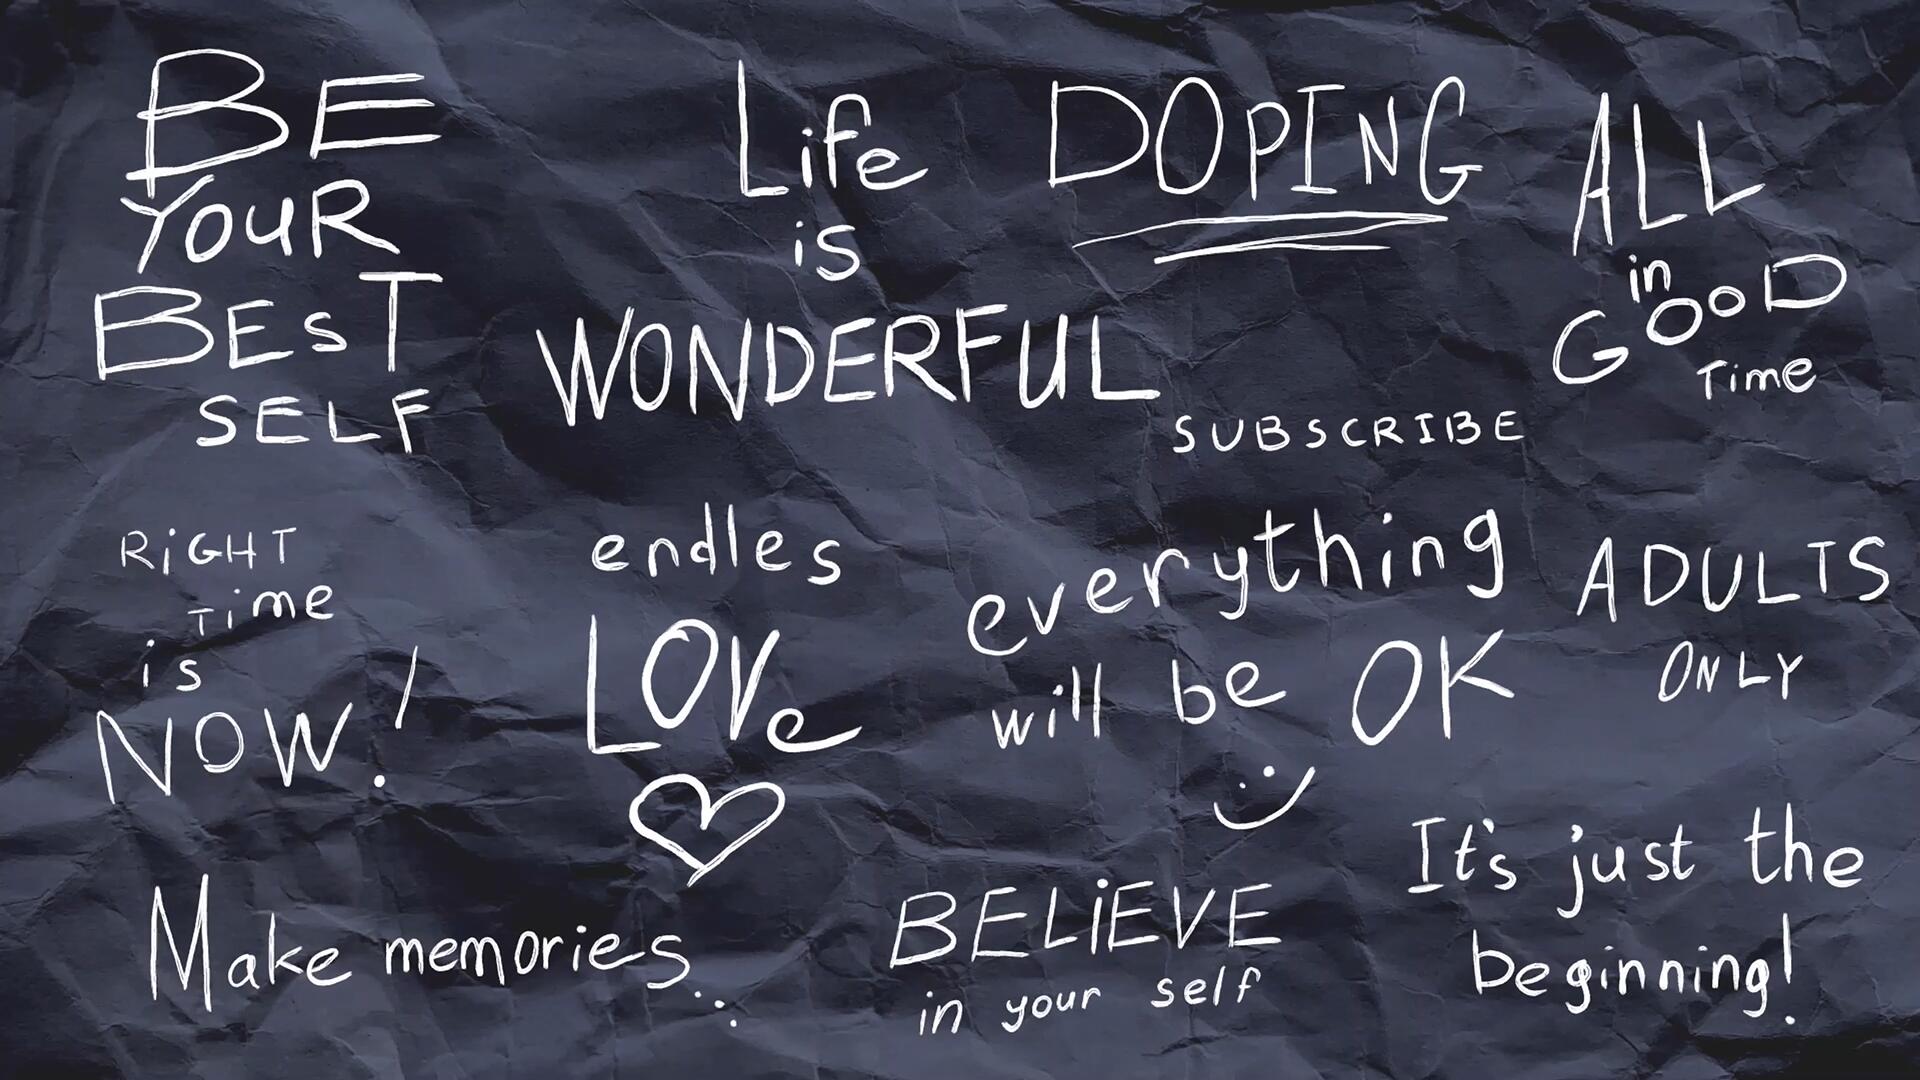 BE
YOUR
BEST
SELF
Life
is
WONDERFUL
DOPING
ALL
in
GOOD
Time
SUBSCRIBE
RiGHT
Time
is
NOW!
endles
LOVe
everything
will be OK
ADULTS
ONLY
Make memories...
BELiEVE
in your self
It's just the
beginning!